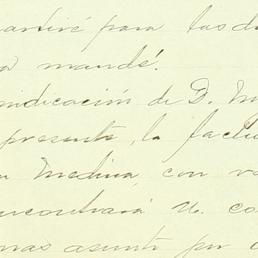 para las
mandé.
indicación de D.
presente, la factu
Medina, con
encontrará U. co
mas asunto por